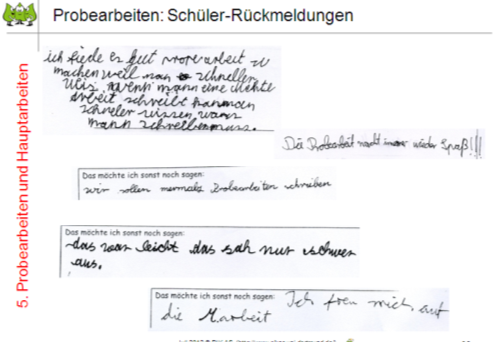 Probearbeiten: Schüler-Rückmeldungen
5. Probearbeiten und Hauptarbeiten
ich fiede es gut Probearbeit zu
machen weil man schneller
Weis wenn mann eine echte
Arbeit schreibt kann man
schneler wissen was
mann schreiben muss.
Die Probearbeit macht immer wieder Spaß!!!
Das möchte ich sonst noch sagen:
wir sollen mermals Probearbeiten schreiben
Das möchte ich sonst noch sagen:
das war leicht das sah nur schwer
aus.
Das möchte ich sonst noch sagen: Ich freu mich auf
die M.arbeit